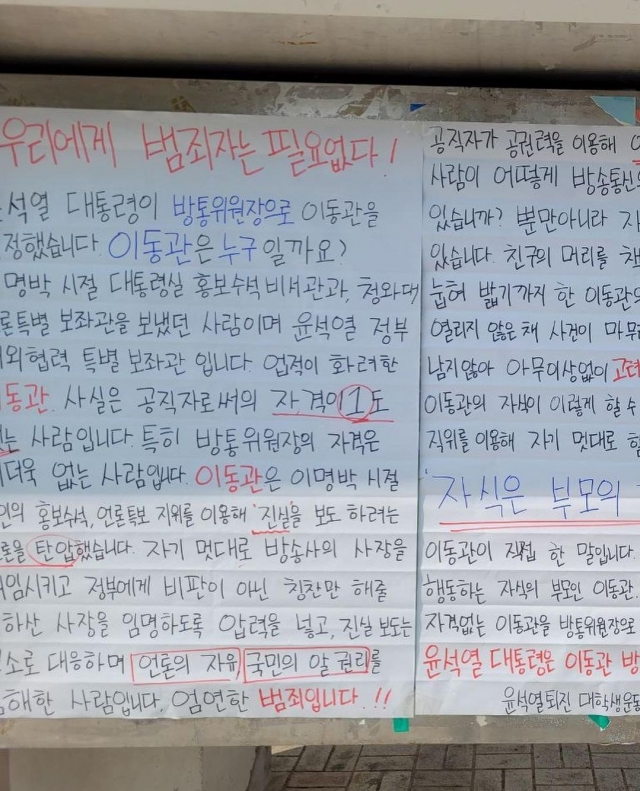 우리에게 범죄자는 필요없다!
석열 대통령이 방통위원장으로 이동관을
정했습니다. 이동관은 누구일까요?
명박 시절 대통령실 홍보수석비서관과, 청와대
론특별 보좌관을 보냈던 사람이며 윤석열 정부
외협력 특별 보좌관 입니다. 업적이 화려한
동관. 사실은 공직자로써의 자격이 1도
는 사람입니다. 특히 방통위원장의 자격은
더욱 없는 사람입니다. 이동관은 이명박 시절
인의 홍보수석, 언론특보 지위를 이용해 '진실'을 보도 하려는
론을 탄압했습니다. 자기 멋대로 방송사의 사장을
임시키고 정부에게 비판이 아닌 칭찬만 해줄
하산 사장을 임명하도록 압력을 넣고, 진실 보도는
소로 대응하며 언론의 자유, 국민의 알 권리를
해한 사람입니다. 엄연한 범죄입니다.!!
공직자가 공권력을 이용해
사람이 어떻게 방송통신
있습니까? 뿐만아니라 자
있습니다. 친구의 머리를 책
눕혀 밟기까지 한 이동관의
열리지 않은 채 사건이 마무리
남지않아 아무이상없이 고려
이동관의 자식이 이렇게 할 수
직위를 이용해 자기 멋대로 할
'자식은 부모의
이동관이 직접 한 말입니다.
행동하는 자식의 부모인 이동관.
자격없는 이동관을 방통위원장으로
윤석열 대통령은 이동관 방
윤석열퇴진 대학생운동